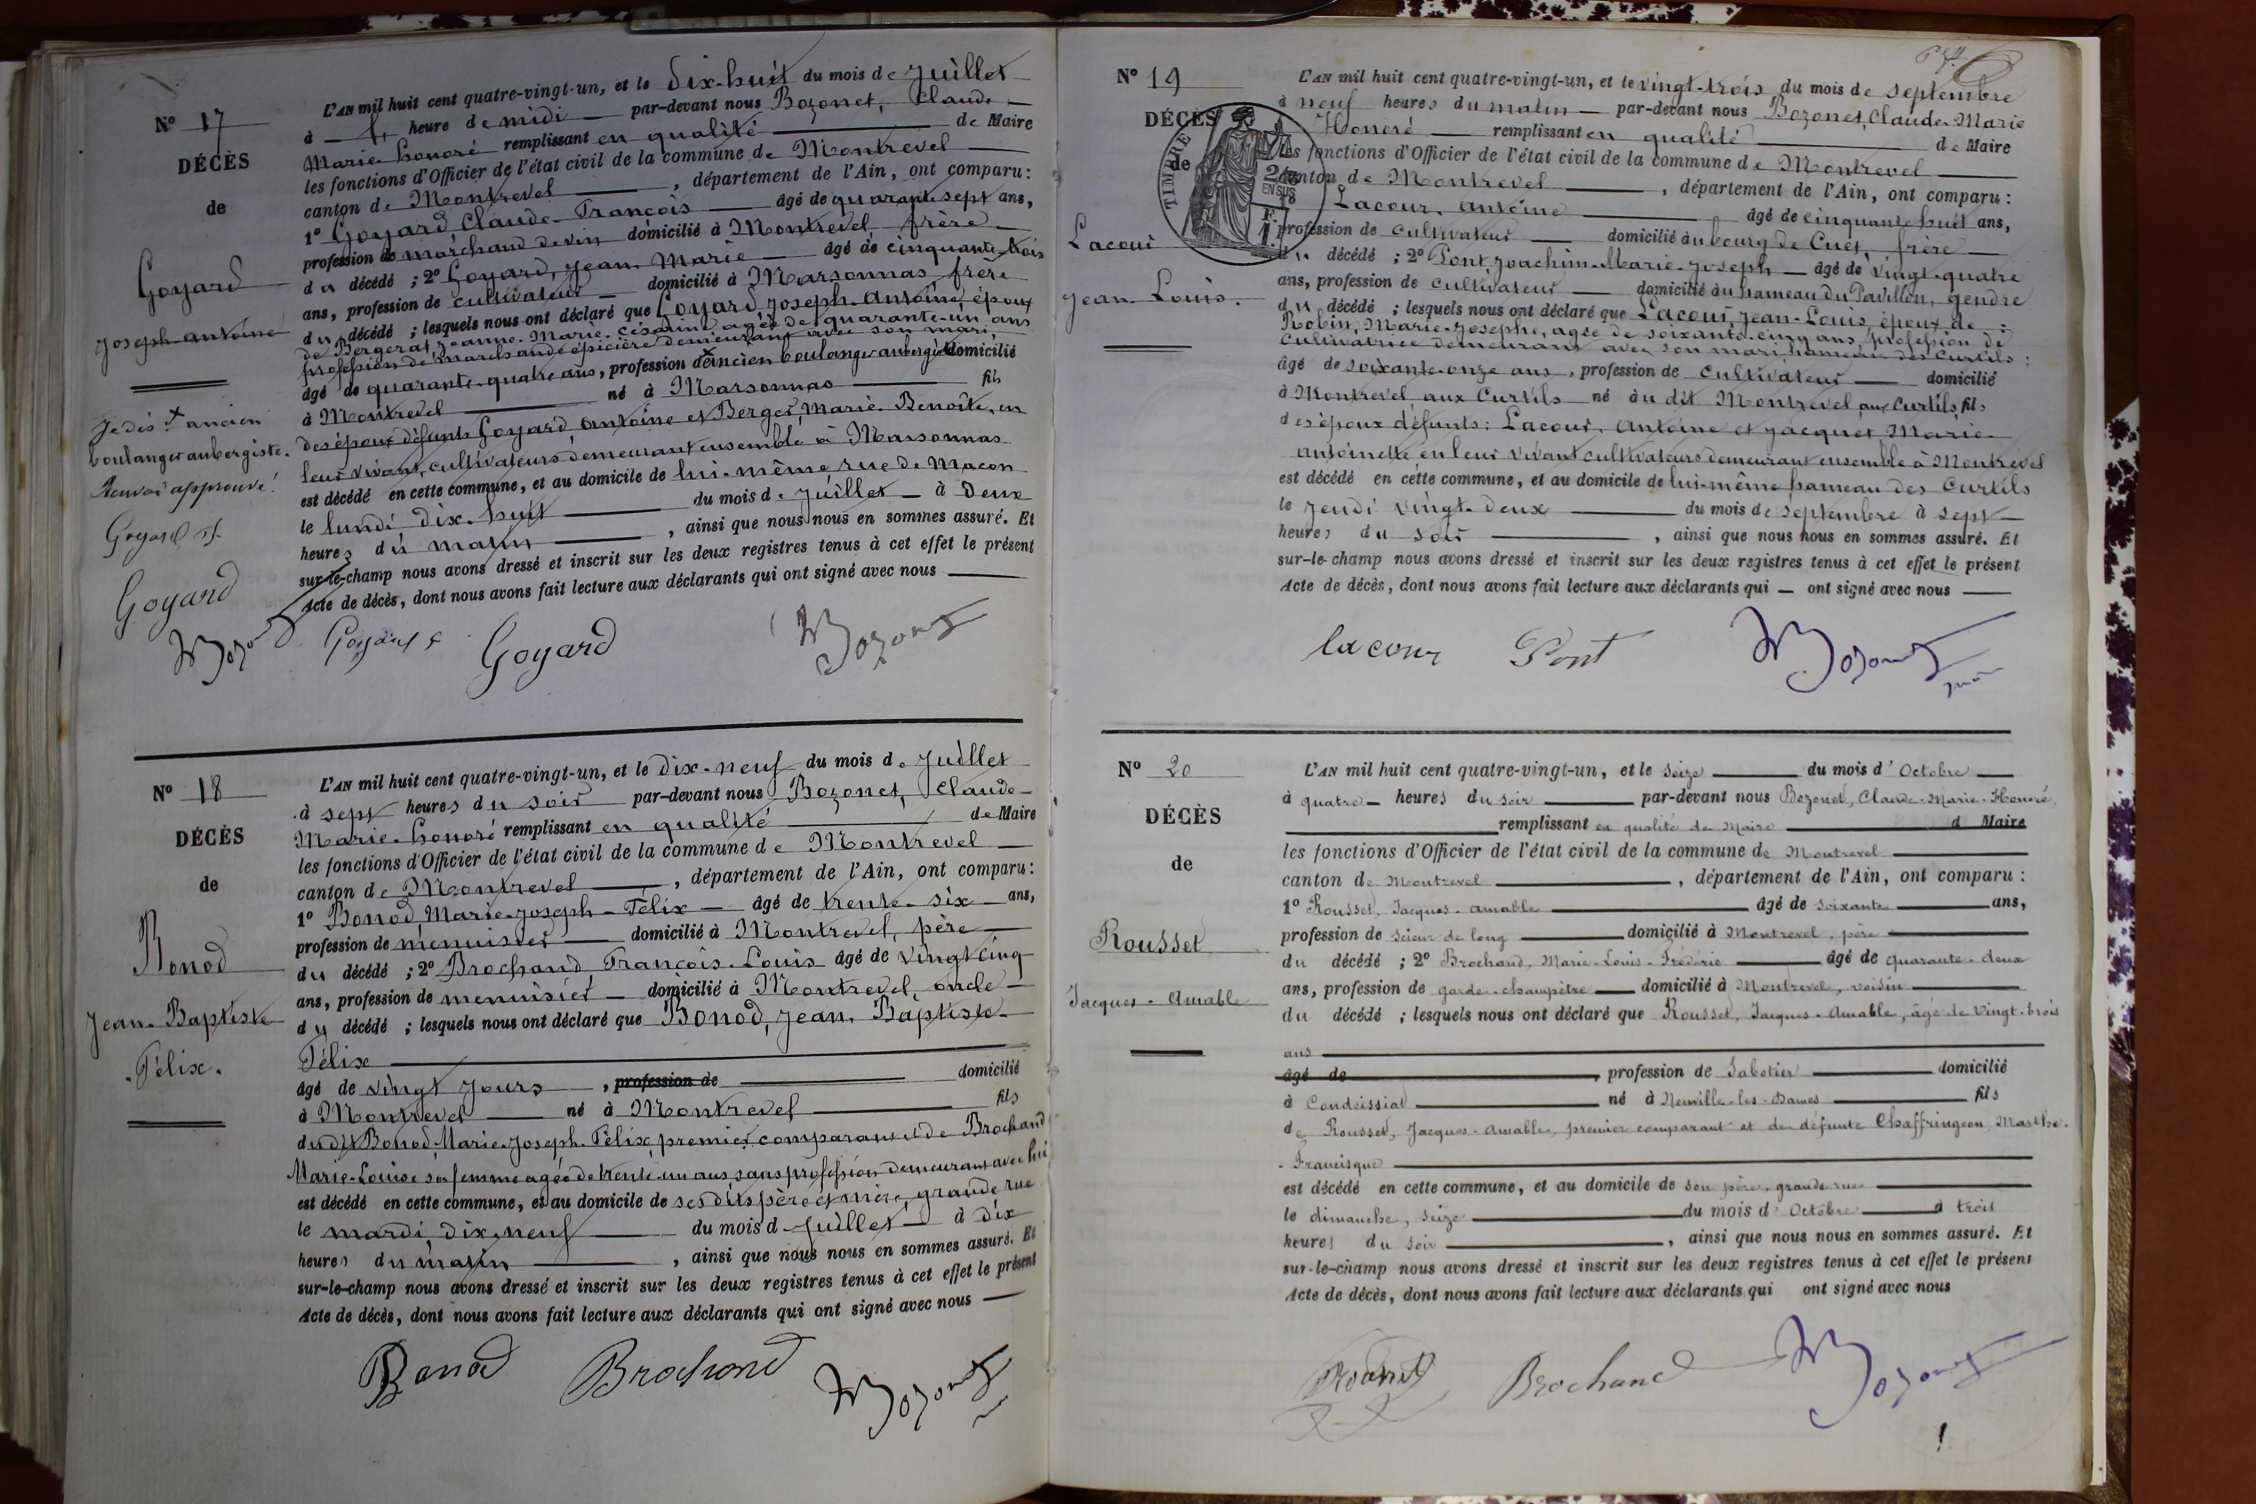 N° 17
DÉCÈS
de
Goyard
Joseph-antoine
Je dis + ancien
boulanger aubergiste.
Renvoi approuvé.
Goyard f.
Goyard
Bozonet
L'AN mil huit cent quatre-vingt-un, et le dix-huit du mois de Juillet
à heure de midi par-devant nous Bozonet, Claude
Marie-honoré remplissant en qualité de Maire
les fonctions d'Officier de l'état civil de la commune de Montrevel
canton de Montrevel, département de l'Ain, ont comparu:
1° Goyard Claude-François âgé de quarante sept ans,
profession de marchand de vin domicilié à Montrevel, frère
du décédé ; 2° Goyard, Jean-Marie âgé de cinquante-trois
ans, profession de cultivateur domicilié à Marsonnas, frère
du décédé ; lesquels nous ont déclaré que Goyard Joseph-Antoine, époux
de Bergerat Jeanne-Marie-Césarine agée de quarante-un ans
profession de marchande épicière demeurant avec son mari,
âgé de quarante-quatre ans, profession d'ancien boulanger aubergiste domicilié
à Montrevel né à Marsonnas fils
des époux défunts Goyard, antoine et Berger, Marie-Benoîte, en
leur vivant, cultivateurs demeurant ensemble à Marsonnas
est décédé en cette commune, et au domicile de lui-même rue de Macon
le lundi dix-huit du mois de Juillet à Deux
heures du matin, ainsi que nous nous en sommes assuré. Et
sur-le-champ nous avons dressé et inscrit sur les deux registres tenus à cet effet le présent
Acte de décès, dont nous avons fait lecture aux déclarants qui ont signé avec nous
Goyard f Goyard Bozonet
N° 18
DÉCÈS
de
Bonod
Jean-Baptiste
-Félix.
L'AN mil huit cent quatre-vingt-un, et le dix-neuf du mois de Juillet
à sept heures du soir par-devant nous Bozonet, Claude-
Marie-honoré remplissant en qualité de Maire
les fonctions d'Officier de l'état civil de la commune de Montrevel
canton de Montrevel, département de l'Ain, ont comparu:
1° Bonod, Marie-Joseph-Félix âgé de trente-six ans,
profession de menuisier domicilié à Montrevel, père
du décédé ; 2° Brochand, François-Louis âgé de vingt cinq
ans, profession de menuisier domicilié à Montrevel, oncle
du décédé ; lesquels nous ont déclaré que Bonod, Jean-Baptiste-
Félix
âgé de vingt jours, profession de domicilié
à Montrevel né à Montrevel fils
du dit Bonod, Marie-Joseph-Félix, premier comparant et de Brochand
Marie-Louise sa femme agée de trente-un ans sans profession demeurant avec lui
est décédé en cette commune, et au domicile de ses dits père et mère, grande rue
le mardi, dix-neuf du mois de Juillet à dix
heures du matin, ainsi que nous nous en sommes assuré. Et
sur-le-champ nous avons dressé et inscrit sur les deux registres tenus à cet effet le présent
Acte de décès, dont nous avons fait lecture aux déclarants qui ont signé avec nous
Bonod Brochand Bozonet
N° 19
DÉCÈS
de
Lacour
Jean-Louis.
TIMBRE
2/10 EN SUS
L'AN mil huit cent quatre-vingt-un, et le vingt-trois du mois de septembre
à neuf heures du matin par-devant nous Bozonet, Claude-Marie
Honoré remplissant en qualité de Maire
les fonctions d'Officier de l'état civil de la commune de Montrevel
canton de Montrevel, département de l'Ain, ont comparu:
Lacour, antoine âgé de cinquante huit ans,
profession de cultivateur domicilié au bourg de Cuet, frère
du décédé ; 2° Pont Joachim-Marie-Joseph âgé de vingt-quatre
ans, profession de cultivateur domicilié au hameau du Pavillon, gendre
du décédé ; lesquels nous ont déclaré que Lacour, Jean-Louis, époux de
Robin, Marie-Josephe, agée de soixante-cinq ans, profession de
cultivatrice demeurant avec son mari hameau des Curtils :
âgé de soixante-onze ans, profession de cultivateur domicilié
à Montrevel, aux Curtils né au dit Montrevel, aux Curtils, fils
des époux défunts: Lacour, antoine et Jacquet Marie-
antoinette en leur vivant cultivateurs demeurant ensemble à Montrevel
est décédé en cette commune, et au domicile de lui-même hameau des Curtils
le jeudi vingt-deux du mois de septembre à sept
heures du soir, ainsi que nous nous en sommes assuré. Et
sur-le-champ nous avons dressé et inscrit sur les deux registres tenus à cet effet le présent
Acte de décès, dont nous avons fait lecture aux déclarants qui ont signé avec nous
lacour Pont Bozonet
N° 20
DÉCÈS
de
Rousset
Jacques-Amable
L'AN mil huit cent quatre-vingt-un, et le seize du mois d'Octobre
à quatre heures du soir par-devant nous Bozonet, Claude-Marie-Honoré,
remplissant en qualité de Maire d Maire
les fonctions d'Officier de l'état civil de la commune de Montrevel
canton de Montrevel, département de l'Ain, ont comparu :
1° Rousset, Jacques-amable âgé de soixante ans,
profession de scieur de long domicilié à Montrevel, père
du décédé ; 2° Brochand, Marie-Louis-Frédéric âgé de quarante-deux
ans, profession de garde-champêtre domicilié à Montrevel, voisin
du décédé ; lesquels nous ont déclaré que Rousset, Jacques-Amable, âgé de vingt-trois
ans
âgé de, profession de Sabotier domicilié
à Condeissiat né à Neuville-les-Dames fils
de Rousset, Jacques-Amable, premier comparant et de défunte Chaffringeon, Marthe-
-Francisque
est décédé en cette commune, et au domicile de son père, grande rue
le dimanche, seize du mois d'Octobre à trois
heures du soir, ainsi que nous nous en sommes assuré. Et
sur-le-champ nous avons dressé et inscrit sur les deux registres tenus à cet effet le présent
Acte de décès, dont nous avons fait lecture aux déclarants qui ont signé avec nous
Brochand Bozonet